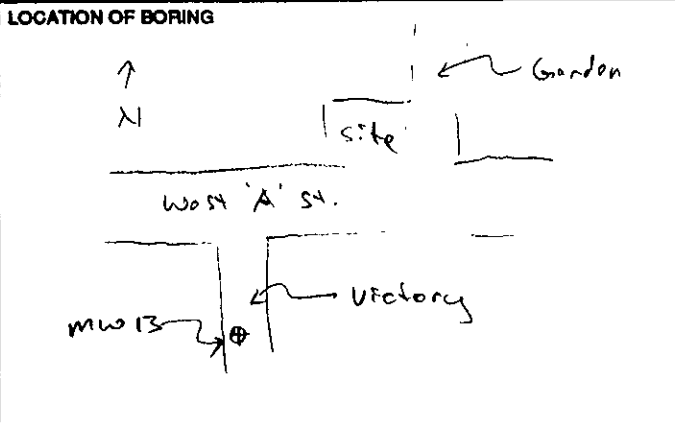 LOCATION OF BORING
Gordon
N
site
West 'A' St.
Victory
MW13